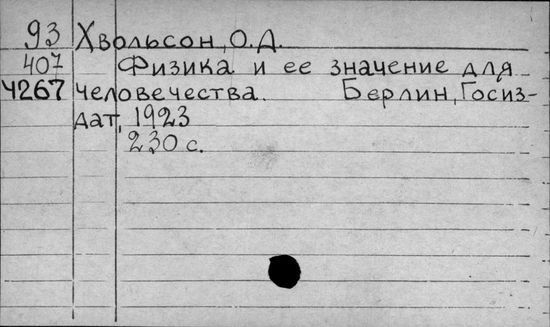 93 Хвольсон, О.Д.
407 Физика и ее значение для
4267 человечества. Берлин, Госиз-
дат, 1923
230 с.